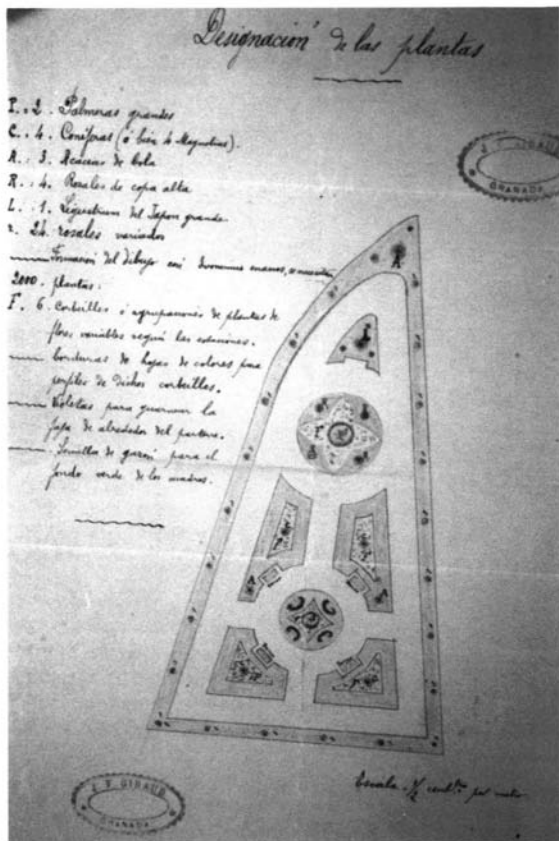 Designacion de las plantas
P. . 2. Palmeras grandes
C. . 4. Coniferas (ó bien 4 Magnolias).
A. . 3. Acacias de bola
R. . 4. Rosales de copa alta
L. . 1. del Japon grande
r. 24. rosales variados
Formacion del dibujo con Evonimus enanos,
2000. plantas.
F. 6. Corbeilles ó agrupaciones de plantas de
flores variables segun las estaciones.
borduras de hojas de colores para
perfiles de dichos corbeilles.
Violetas para guarnecer la
faja de alrededor del parterre.
Semilla de gazon para el
fondo verde de los cuadros.
J. F. GIRAUD
GRANADA
A
J. F. GIRAUD
GRANADA
Escala ½ centº por metro